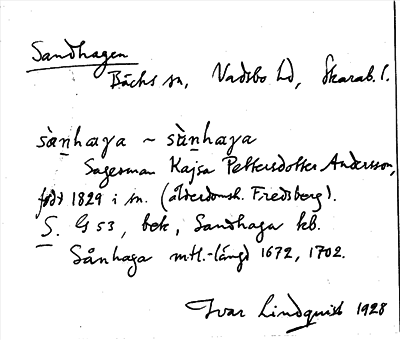 Sandhagen
Bäcks sn, Vadsbo hd, Skarab. l.
sàn̲haga ~ sàn̲haga
Sagesman Kajsa Pettersdotter Andersson,
född 1829 i sn. (ålderdomsh. Fredsberg).
S. G 53, bok, Sandhaga kb.
Sånhaga mtl.-längd 1672, 1702.
Ivar Lindquist 1928